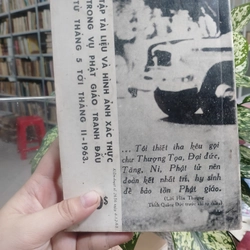 TẬP TÀI LIỆU VÀ HÌNH ẢNH XÁC THỰC
TRONG VỤ PHẬT GIÁO TRANH ĐẤU
TỪ THÁNG 5 TỚI THÁNG 11-1963.
... Tôi thiết tha kêu gọi
chư Thượng Tọa, Đại đức,
Tăng, Ni, Phật tử nên
đoàn kết nhất trí, hy sinh
để bảo tồn Phật giáo.
Cố Hòa Thượng
Thích Quảng Đức